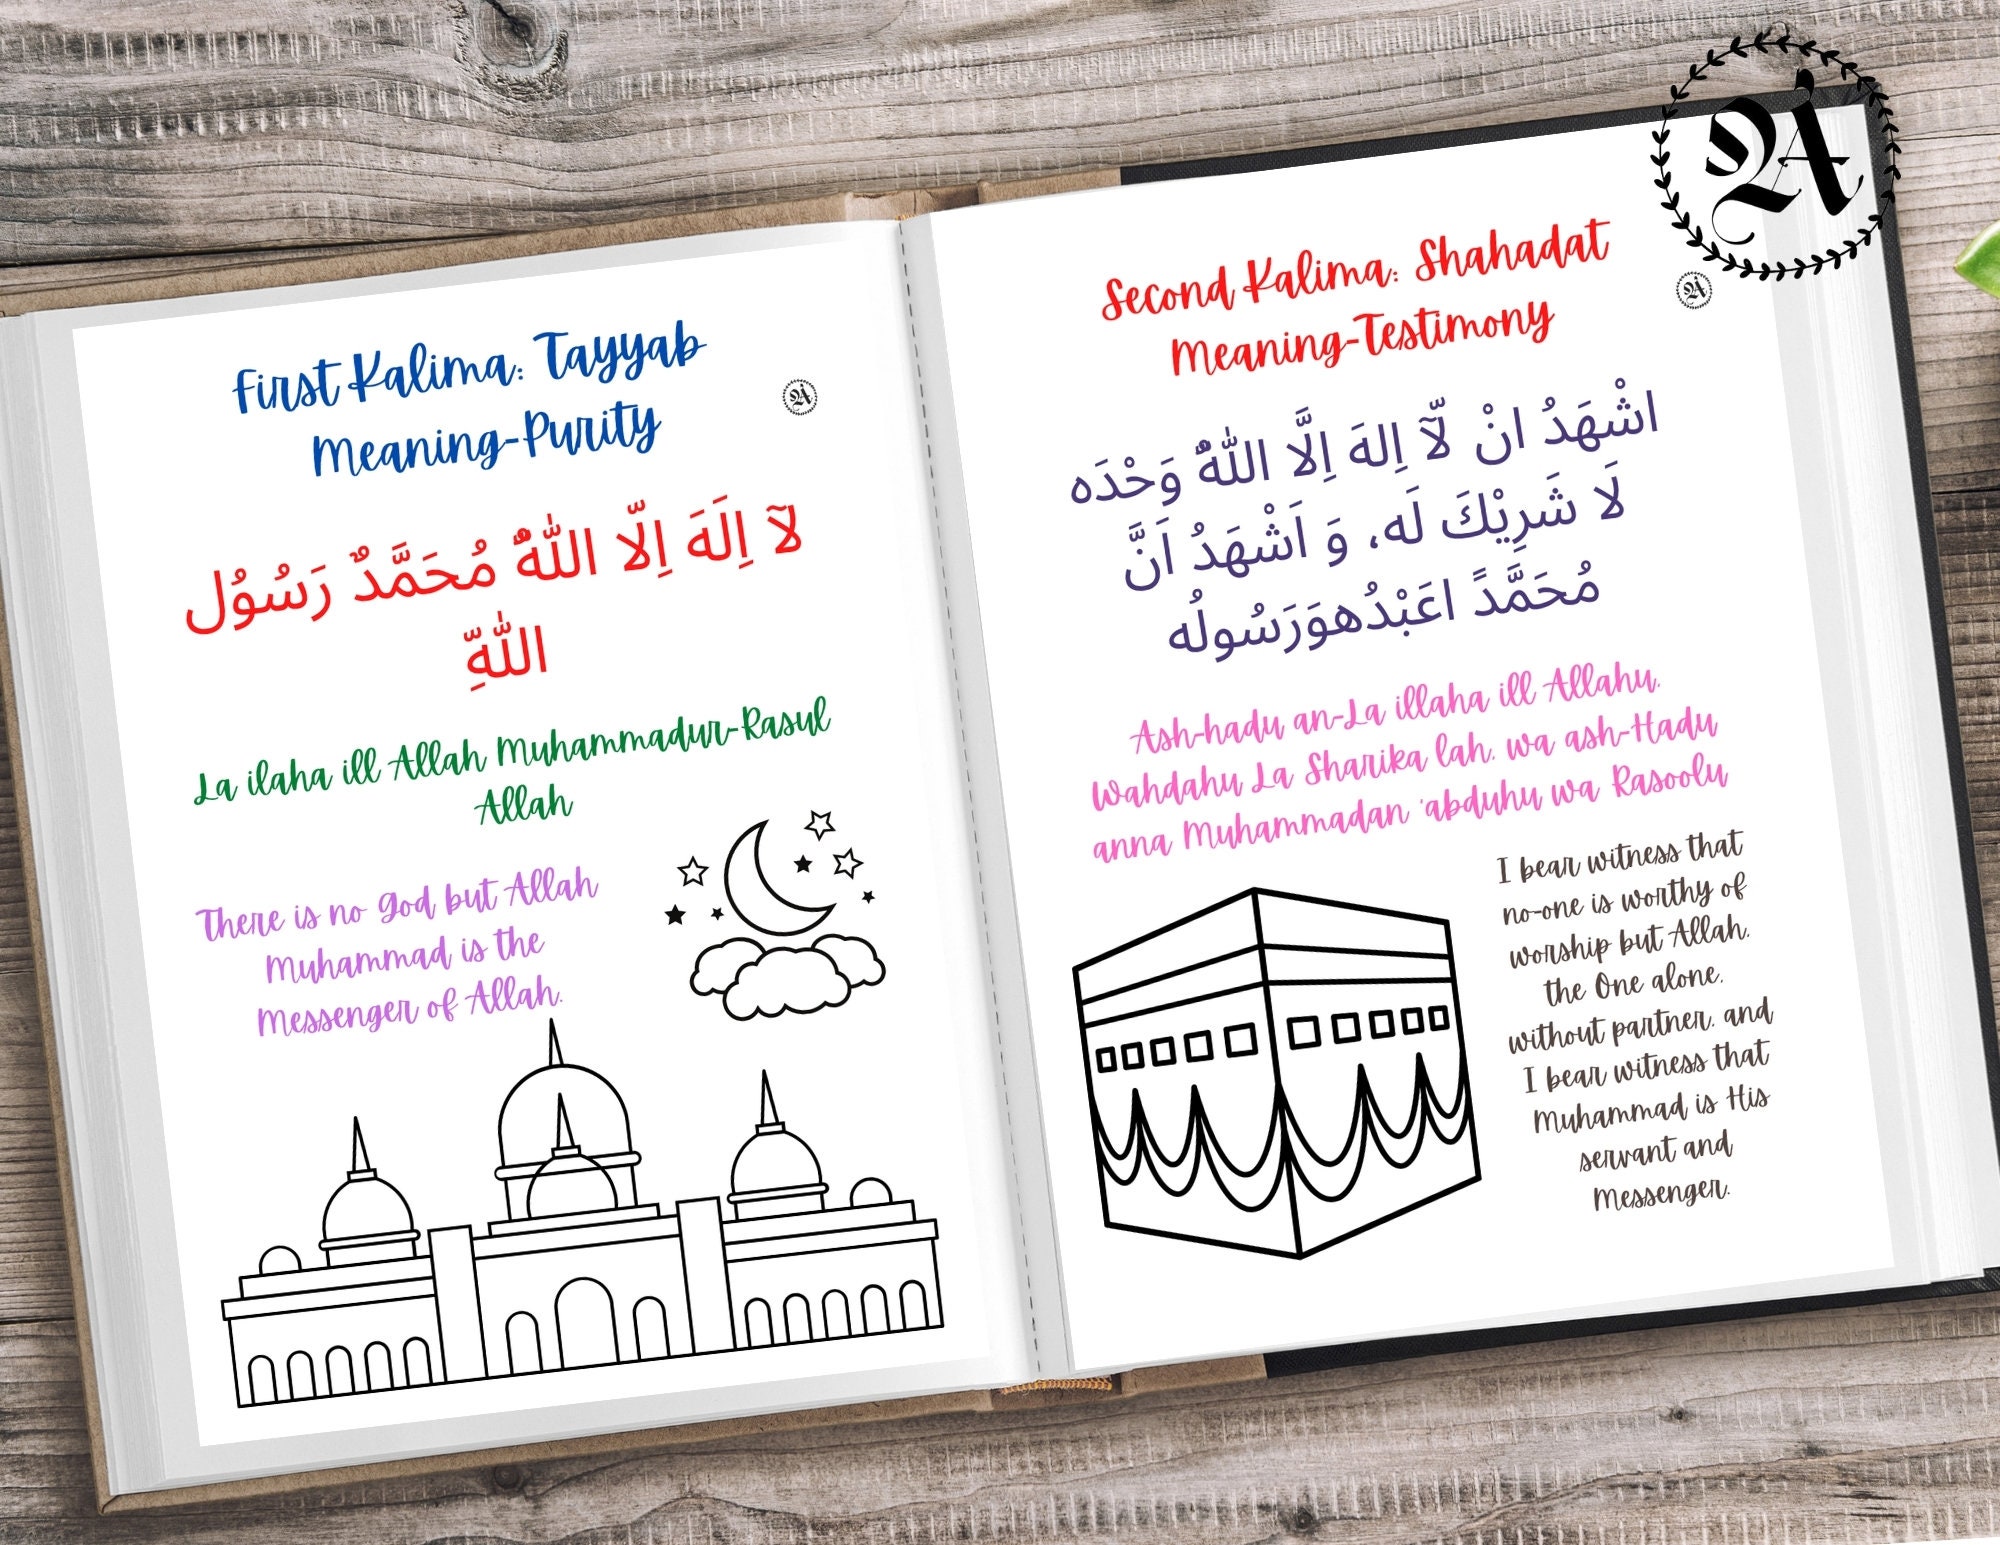 First Kalima: Tayyab
Meaning-Purity
لآ اِلَهَ اِلّا اللّٰهُ مُحَمَّدٌ رَسُوُل
اللّٰهِ
La ilaha ill Allah Muhammadur-Rasul
Allah
There is no God but Allah
Muhammad is the
Messenger of Allah.
Second Kalima: Shahadat
Meaning-Testimony
اشْهَدُ انْ لّآ اِلهَ اِلَّا اللّٰهُ وَحْدَه
لَا شَرِيْكَ لَه، وَ اَشْهَدُ اَنَّ
مُحَمَّدً اعَبْدُهوَرَسُولُه
Ash-hadu an-La illaha ill Allahu.
Wahdahu La Sharika lah. wa ash-Hadu
anna Muhammadan 'abduhu wa Rasoolu
I bear witness that
no-one is worthy of
worship but Allah.
the One alone.
without partner. and
I bear witness that
Muhammad is His
servant and
Messenger.